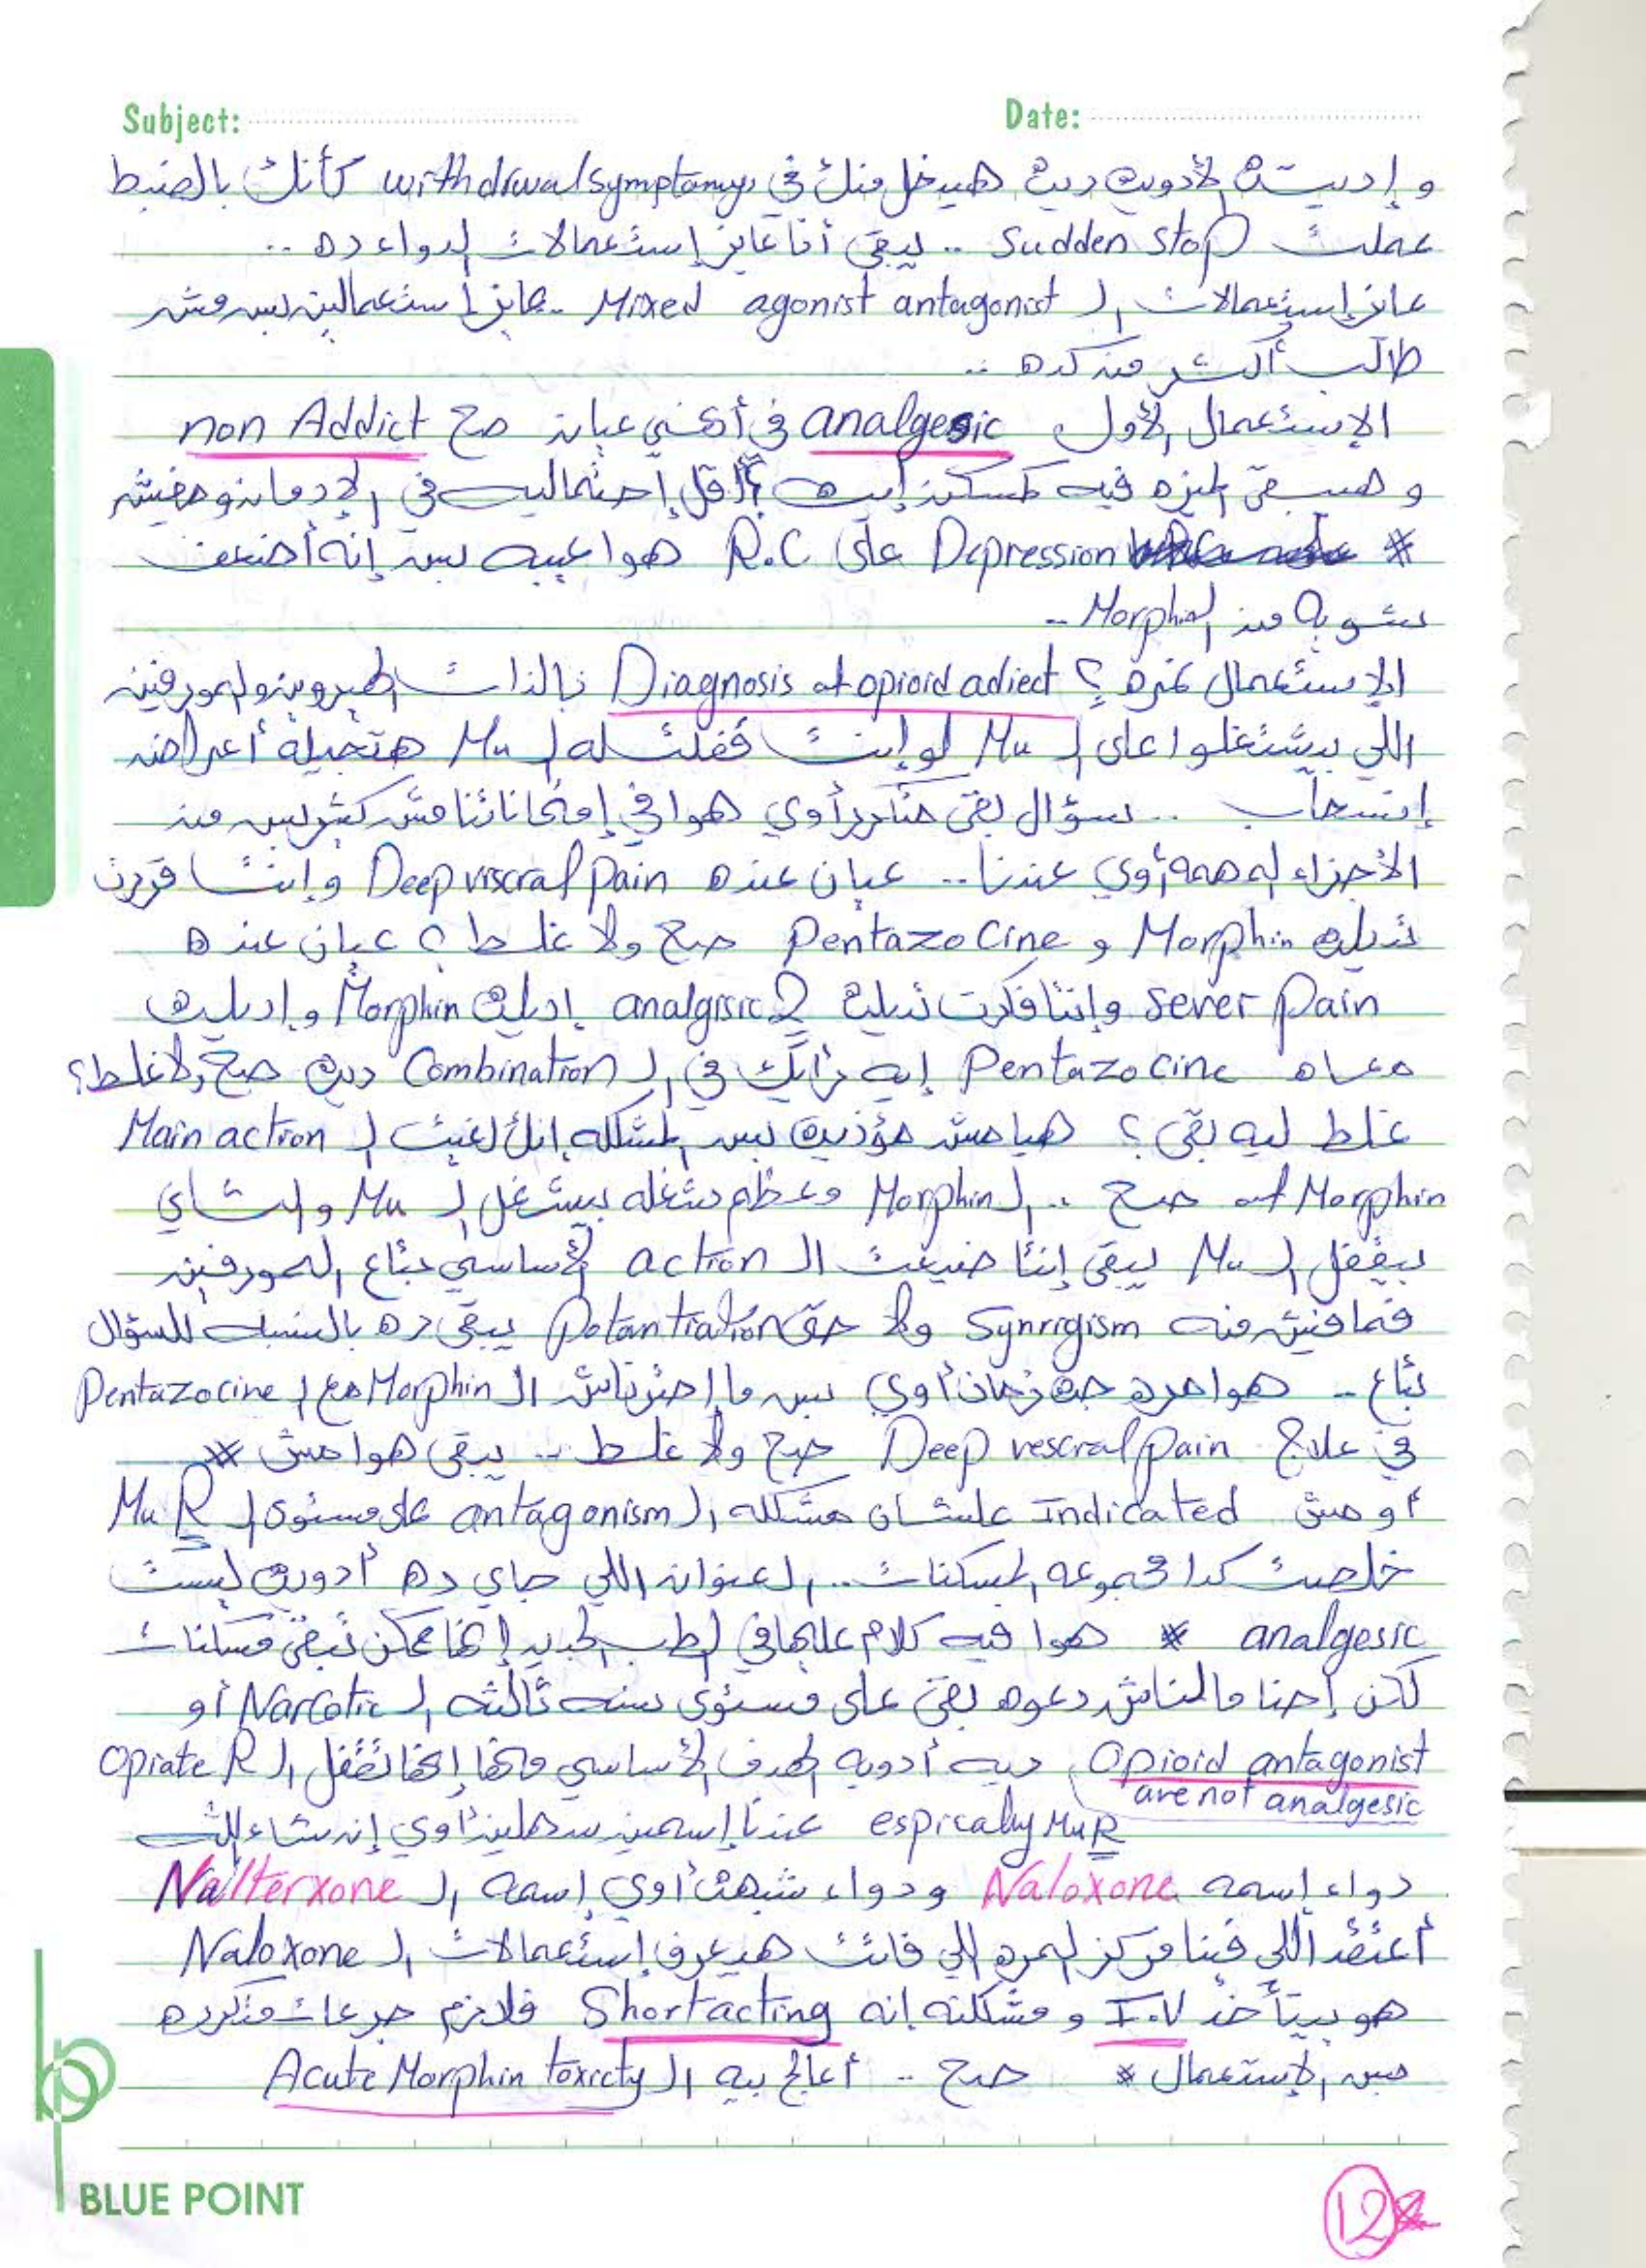 Subject:
Date:
و إديته الأدوية ديه هيدخل منك في withdrwal symptoms كأنك بالضبط
عملت Sudden stop .. يبقى أنا عايز إستعمالات الدواء ده ..
عايز إستعمالات ال Mixed agonist antagonist عايز إستعمالين بس مش
طالب أكتر من كده ..
الإستعمال الأول analgesic في أي عيان صح non Addict
و هيبقى الميزه فيه كمسكن إيه ؟ أقل إحتماليه في الإدمان ومفيش
* Depression على R.C هوا عيبه بس إنه أضعف
شويه من الـ Morphin ..
الإستعمال نمرة ؟ Diagnosis of opioid adiect بالذات الهيروين والمورفين
اللي بيشتغلوا على ال Mu لو إنت قفلت له ال Mu هتجيله أعراض
إنسحاب .. سؤال بقى متكرر أوي هوا في إمتحاناتنا مش كتير بس من
الأجزاء المهمه أوي عندنا .. عيان عنده Deep viscral pain وإنت قررت
تديله Morphin و Pentazocine صح ولا غلط ؟ عيان عنده
sever pain وإنتا فكرت تديله 2 analgisic إديله Morphin و إديله
معاه Pentazocine إيه رأيك في ال Combination ديه صح ولا غلط؟
غلط ليه بقى ؟ هيا مش مؤذيه بس المشكله إنك لغيت ال Main action
of Morphin صح .. ال Morphin معظم شغله بيشغل ال Mu والتاني
بيقفل ال Mu يبقى إنتا ضيعت ال action الأساسي بتاع المورفين
فمافيش منه Synrrgism ولا حتى Potantiation يبقى ده بالنسبه للسؤال
بتاع - هوا مره جه زمان أوي بس ما إخترناش ال Morphin مع ال Pentazocine
في علاج Deep vescral pain صح ولا غلط .. يبقى هوا مش *
أو مش Indicated علشان مشكله ال antagonism على مستوى ال Mu R
خلصت كدا مجموعه المسكنات .. العنوان اللي جاي ده أدويه ليست
analgesic * هوا فيه كلام عليها في الطب الجديد إنها ممكن تبقى مسكنات
لكن إحنا مالناش دعوه بقى على مستوى سنه تالته ال Narcotic أو
Opioid antagonist ديه أدويه الهدف الأساسي منها إنها تقفل ال Opiate R
are not analgesic
espically Mu R عندنا إسمين سهلين أوي إن شاء الله
دواء إسمه Naloxone ودواء شبهه أوي إسمه ال Nalterxone
أعتقد اللي فينا مركز المره اللي فاتت هيعرف إستعمالات ال Naloxone
هو بيتأخد I.V و مشكلته إنه Short acting فلازم جرعات متكرره
بس الإستعمال * صح .. أعالج بيه ال Acute Morphin toxicty
bp
BLUE POINT
12